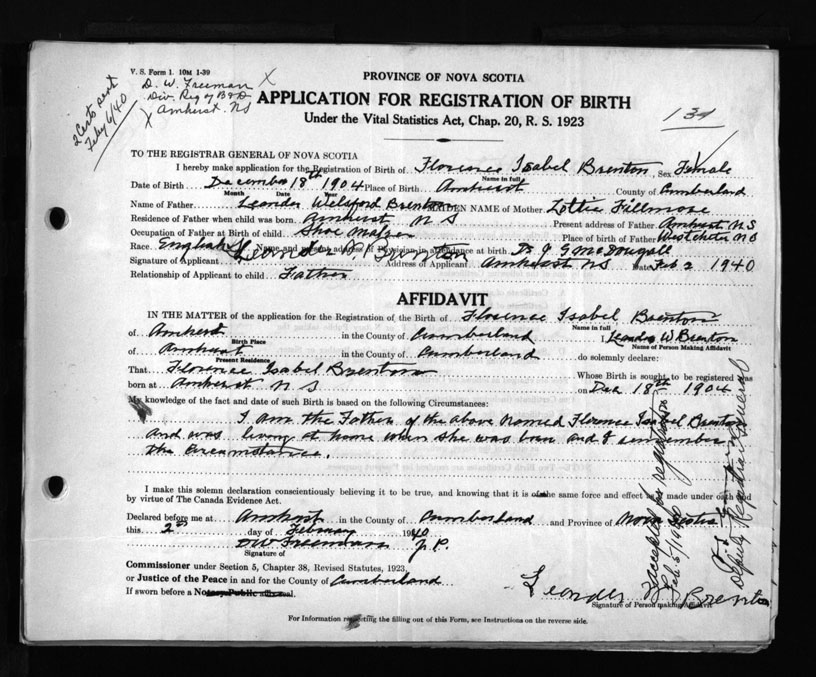 V. S. Form 1. 10M 1-39
D. W. Freeman X
Div. Reg of B & D
X Amherst. NS
2 Certs sent
Feby 6/40
PROVINCE OF NOVA SCOTIA
APPLICATION FOR REGISTRATION OF BIRTH
Under the Vital Statistics Act, Chap. 20, R. S. 1923
TO THE REGISTRAR GENERAL OF NOVA SCOTIA
I hereby make application for the Registration of Birth of Florence Isabel Brenton, Sex Female
Name in full
Date of Birth December 18th 1904 Place of Birth Amherst County of Cumberland
Month Date Year
Name of Father Leander Welsford Brenton MAIDEN NAME of Mother Lottie Fillmore
Residence of Father when child was born Amherst N S Present address of Father Amherst N S
Occupation of Father at Birth of child Shoe Place of birth of Father
Race. English Name and present address of Physician in attendance at birth Dr
Signature of Applicant Leander W. Brenton Address of Applicant Amherst N S Date Feb 2 1940
Relationship of Applicant to child Father
AFFIDAVIT
IN THE MATTER of the application for the Registration of the Birth of Florence Isabel Brenton
Name in full
of Amherst in the County of Cumberland I Leander W Brenton
Birth Place Name of Person Making Affidavit
of Amherst in the County of Cumberland do solemnly declare:
Present Residence
That Florence Isabel Brenton Whose Birth is sought to be registered was
born at Amherst N S on Dec 18th 1904
My knowledge of the fact and date of such Birth is based on the following Circumstances:
I am the Father of the above Named Florence Isabel Brenton
and was living at home when she was born and I remember
the Circumstance.
I make this solemn declaration conscientiously believing it to be true, and knowing that it is of the same force and effect as if made under oath and
by virtue of The Canada Evidence Act.
Declared before me at Amherst in the County of Cumberland and Province of Nova Scotia
this 2nd day of February 1940
D W Freeman J. P.
Signature of
Commissioner under Section 5, Chapter 38, Revised Statutes, 1923,
or Justice of the Peace in and for the County of Cumberland
If sworn before a Notary Public affix seal.
Leander Brenton
Signature of Person making Affidavit
For Information respecting the filling out of this Form, see Instructions on the reverse side.
Accepted for registration
Feb 5/1940
Deputy Registrar General